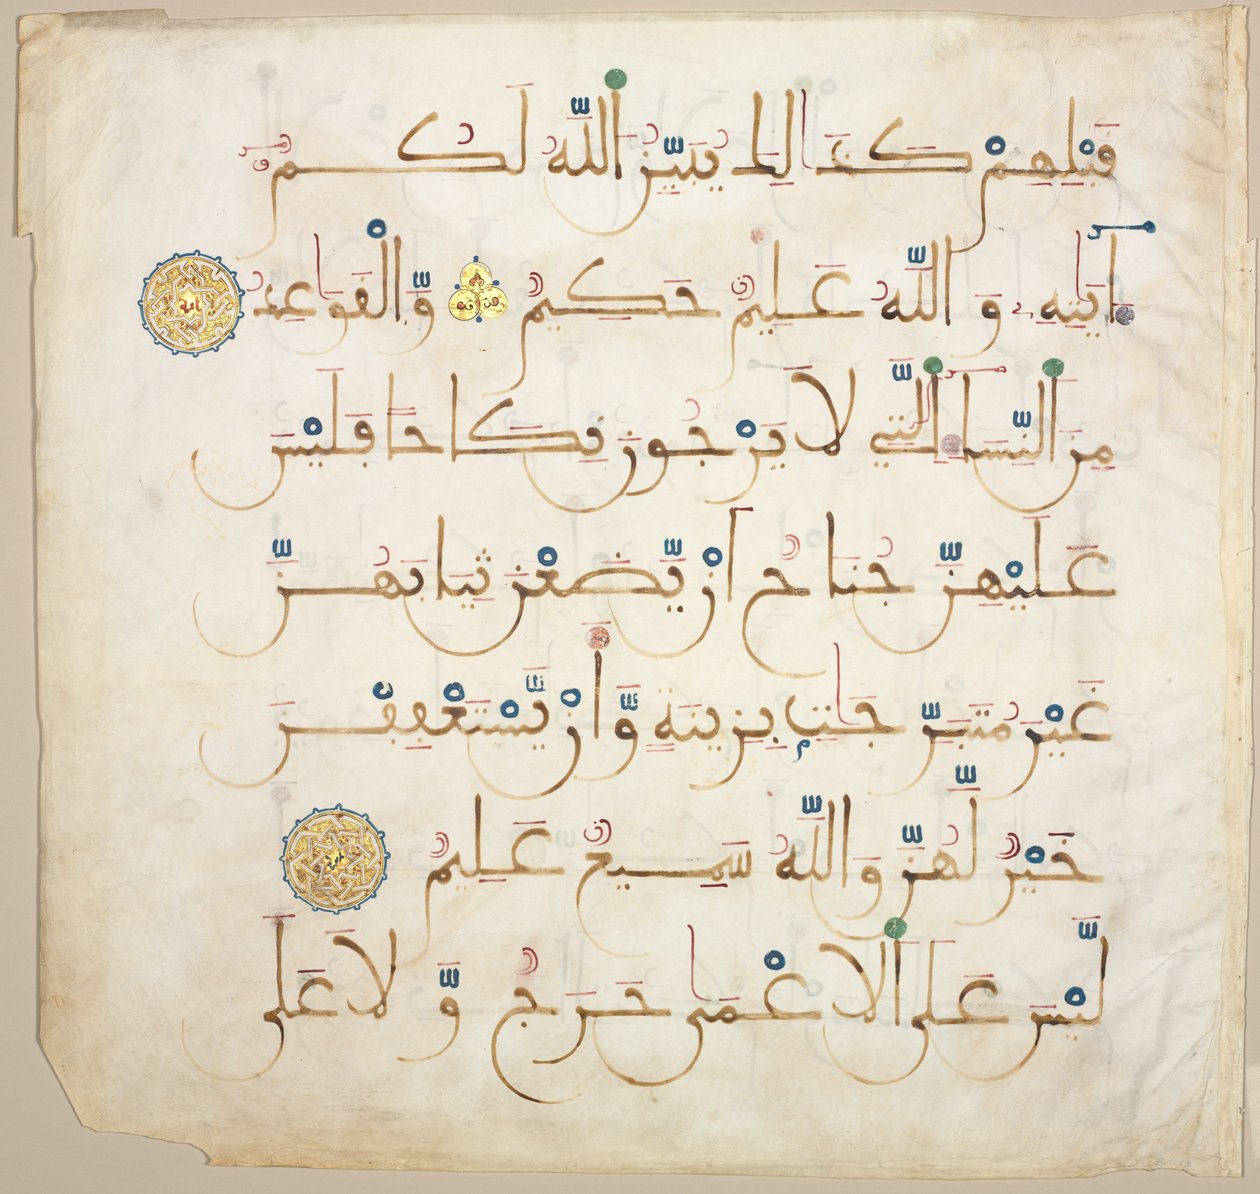 قَبْلِهِمْ كَذَٰلِكَ يُبَيِّنُ اللَّهُ لَكُمُ
ءَايَٰتِهِ وَاللَّهُ عَلِيمٌ حَكِيمٌ وَّالْقَوَٰعِدُ
مِنَ النِّسَاءِ الَّٰتِي لَا يَرْجُونَ نِكَاحًا فَلَيْسَ
عَلَيْهِنَّ جُنَاحٌ أَنْ يَّضَعْنَ ثِيَابَهُنَّ
غَيْرَ مُتَبَرِّجَٰتٍ بِزِينَةٍ وَّأَنْ يَّسْتَعْفِفْنَ
خَيْرٌ لَّهُنَّ وَاللَّهُ سَمِيعٌ عَلِيمٌ
لَّيْسَ عَلَى الَاعْمَىٰ حَرَجٌ وَّلَا عَلَى